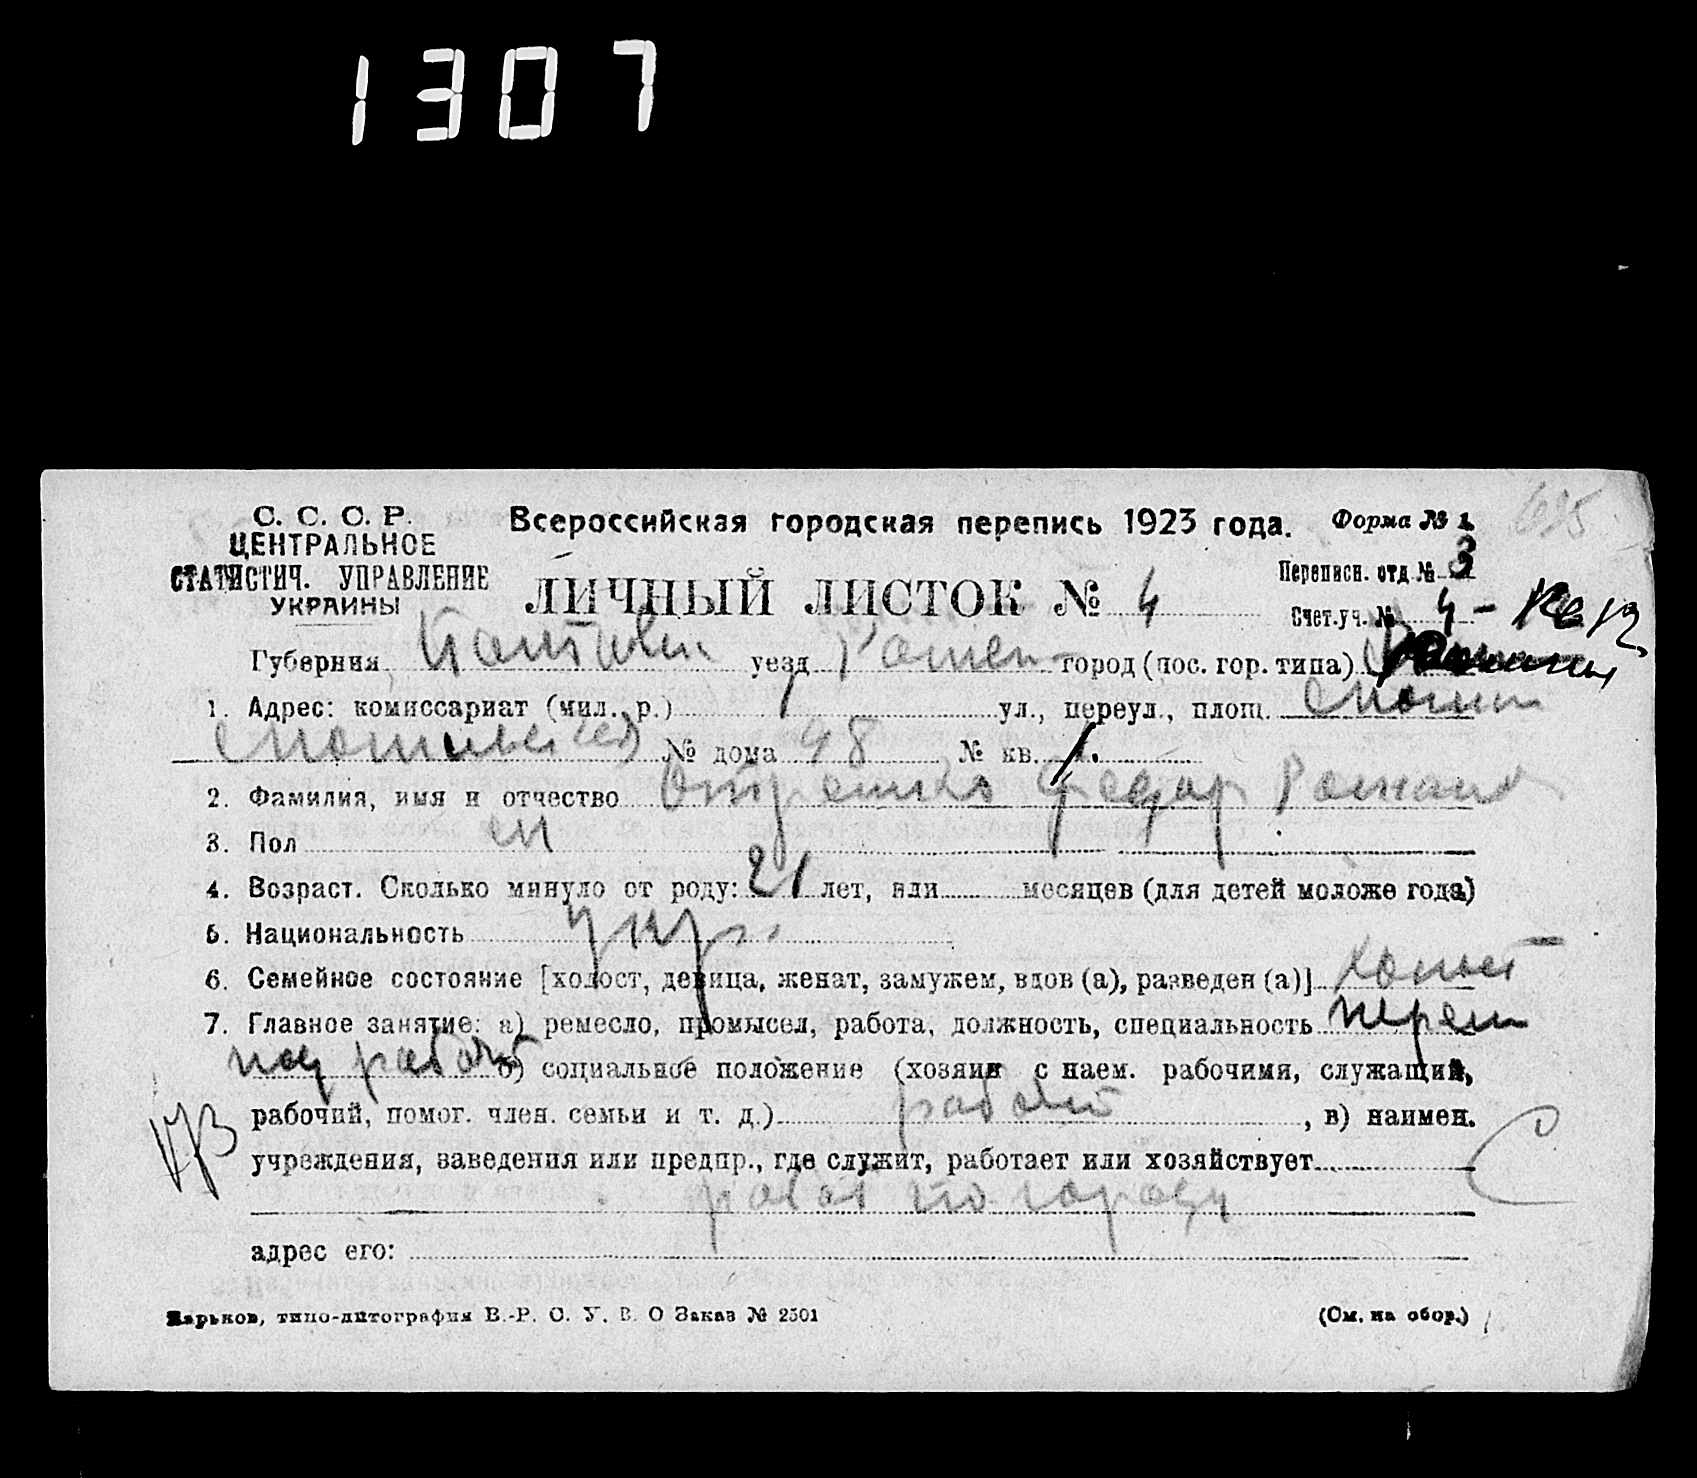 1307
С. С. С. Р.
ЦЕНТРАЛЬНОЕ
СТАТИСТИЧ. УПРАВЛЕНИЕ
УКРАИНЫ
Всероссийская городская перепись 1923 года.
Форма № 1.
ЛИЧНЫЙ ЛИСТОК № 4
Переписн. отд. № 3
Счет.уч. № 4 -
Губерния уезд Ромен- город (пос. гор. типа)
1. Адрес: комиссариат (мил. р.) ул., переул., площ.
№ дома 48 № кв. 1.
2. Фамилия, имя и отчество Федор Роман
3. Пол м
4. Возраст. Сколько минуло от роду: 21 лет, или месяцев (для детей моложе года)
5. Национальность укр.
6. Семейное состояние [холост, девица, женат, замужем, вдов (а), разведен (а)] холост
7. Главное занятие: а) ремесло, промысел, работа, должность, специальность
рабоч б) социальное положение (хозяин с наем. рабочими, служащий,
рабочий, помог. член. семьи и т. д.) рабочий, в) наимен.
учреждения, заведения или предпр., где служит, работает или хозяйствует
работ по городу
адрес его:
Харьков, типо-литография В.-Р. С. У. В. О Заказ № 2501
(См. на обор.)